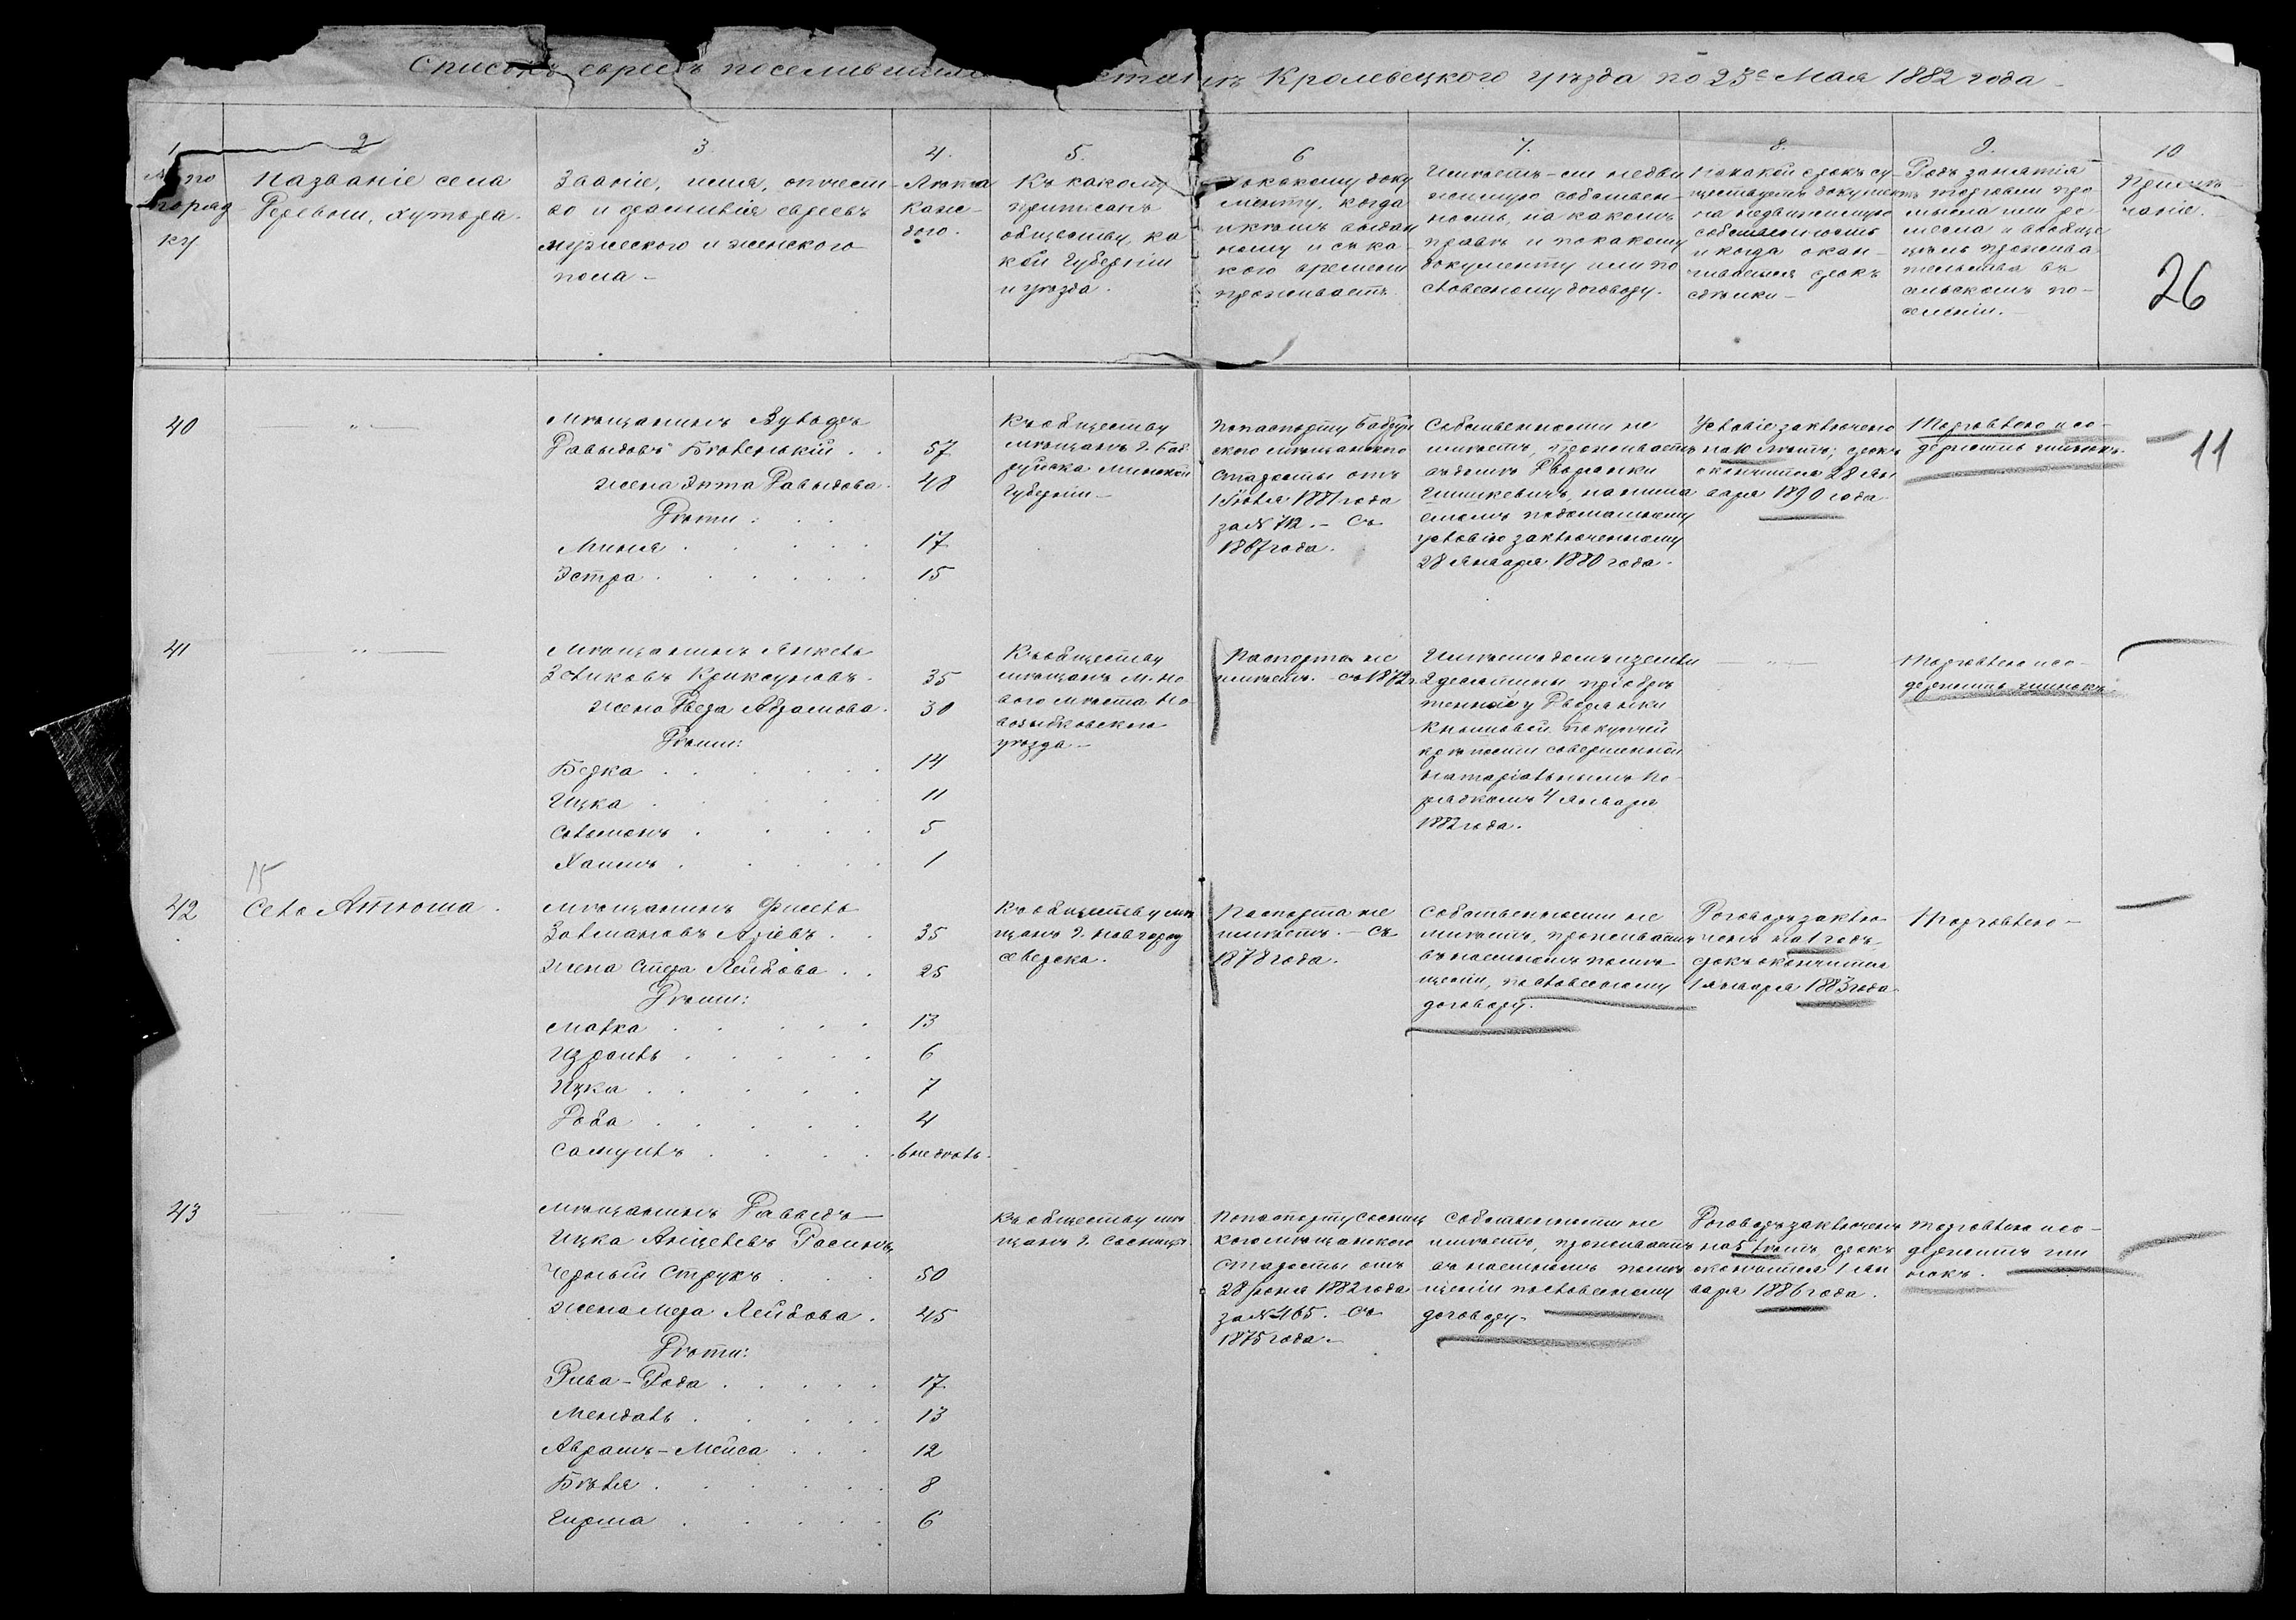 Списокъ евреевъ поселившихся Кролевецкого уѣзда по 23е Мая 1882 года
1
№ по
поряд
ку
2
Названіе села
деревни, хутора.
3.
Званіе, имя, отчест-
во и фамилія евреевъ
мужескаго и женскаго
пола
4.
Лѣта
каж-
дого.
5.
Къ какому
приписанъ
обществу, ка
кой Губерніи
и уѣзда.
6
По какому доку
менту, когда
и кѣмъ выдан
ному и съ ка-
кого времени
проживаетъ.
7.
Имѣетъ-ли недви
жимую собствен-
ность, на какомъ
правѣ и по какому
документу или по
словесному договору.
8.
На какой срокъ су
ществуетъ документъ
на недвижимую
собственность
и когда окан-
чивается срокъ
сдѣлки
9.
Родъ занятія
торговли про
мысла или ре
месла и вообще
цѣль прожива
тельства въ
сельскомъ по-
селеніи.
10
Примѣ-
чаніе.
26
40
— " —
Мѣщанинъ
Давыдовъ
57
жена Энта Давыдова
48
Дѣти:
Миня
17
Эстра
15
Къ обществу
мѣщанъ г. Боб
руйска Минской
Губерніи
По паспорту Бобруй
ского мѣщанского
старосты отъ
1 Іюля 1881 года
за № 712. – Съ
1867 года.
Собственности не
имѣетъ, проживаетъ
въ домѣ Дворянки
Шишкевичъ, нанима
емомъ по домашнему
условію заключенному
28 Января 1880 года.
Условіе заключено
на 10 лѣтъ; срокъ
окончится 28 Ян
варя 1890 года
Торговлею и со-
держитъ шинокъ.
11
41
— " —
Мѣщанинъ Янкель
Зеликовъ Криксуновъ.
35
жена Двера Абрамова.
30
Дѣти:
Берка
14
Ицка
11
Соломонъ
5
Хаимъ
1
Къ обществу
мѣщанъ м. Но
вого мѣста Но
возыбковского
уѣзда
Паспорта не
имѣетъ. съ 1872 г.
Имѣетъ домъ и земли
2 десятины пріобрѣ
тенные у Дворянки
купчей
крѣпости совершенной
нотаріальнымъ по-
рядкомъ 4 Января
1882 года.
— " —
Торговлею и со-
держитъ шинокъ.
15
42
Село Атюша.
Мѣщанинъ Фишель
Залмановъ Аріевъ
35
жена Стера Лейбова
25
Дѣти:
Малка
13
Израиль
6
Ицка
7
Доба
4
Самуилъ
6 недѣль.
Къ обществу мѣ
щанъ г. Новгород
северска.
Паспорта не
имѣетъ. – Съ
1878 года.
Собственности не
имѣетъ, проживаетъ
въ наемномъ помѣ
щеніи, по словесному
договору.
Договоръ заклю
ченъ на 1 годъ
срокъ окончится
1 Января 1883 года
Торговлею –
43
— " —
Мѣщанинъ Давыдъ
Ицка Расинъ
Черный Струкъ
50
жена Мера Лейбова.
45
Дѣти:
Рива-Года
17
Мендель
13
Абрамъ-Мейса
12
Бѣля
8
Гирша
6
Къ обществу мѣ
щанъ г. Сосницы.
По паспорту Сосниц
кого мѣщанского
старосты отъ
28 1882 года
за № 465. – Съ
1875 года. –
Собственности не
имѣетъ, проживаетъ
въ наемномъ помѣ
щеніи по словесному
договору.
Договоръ заключенъ
на 5 лѣтъ, срокъ
окончится 1 Ян
варя 1886 года.
Торговлею и со-
держитъ ши
нокъ.